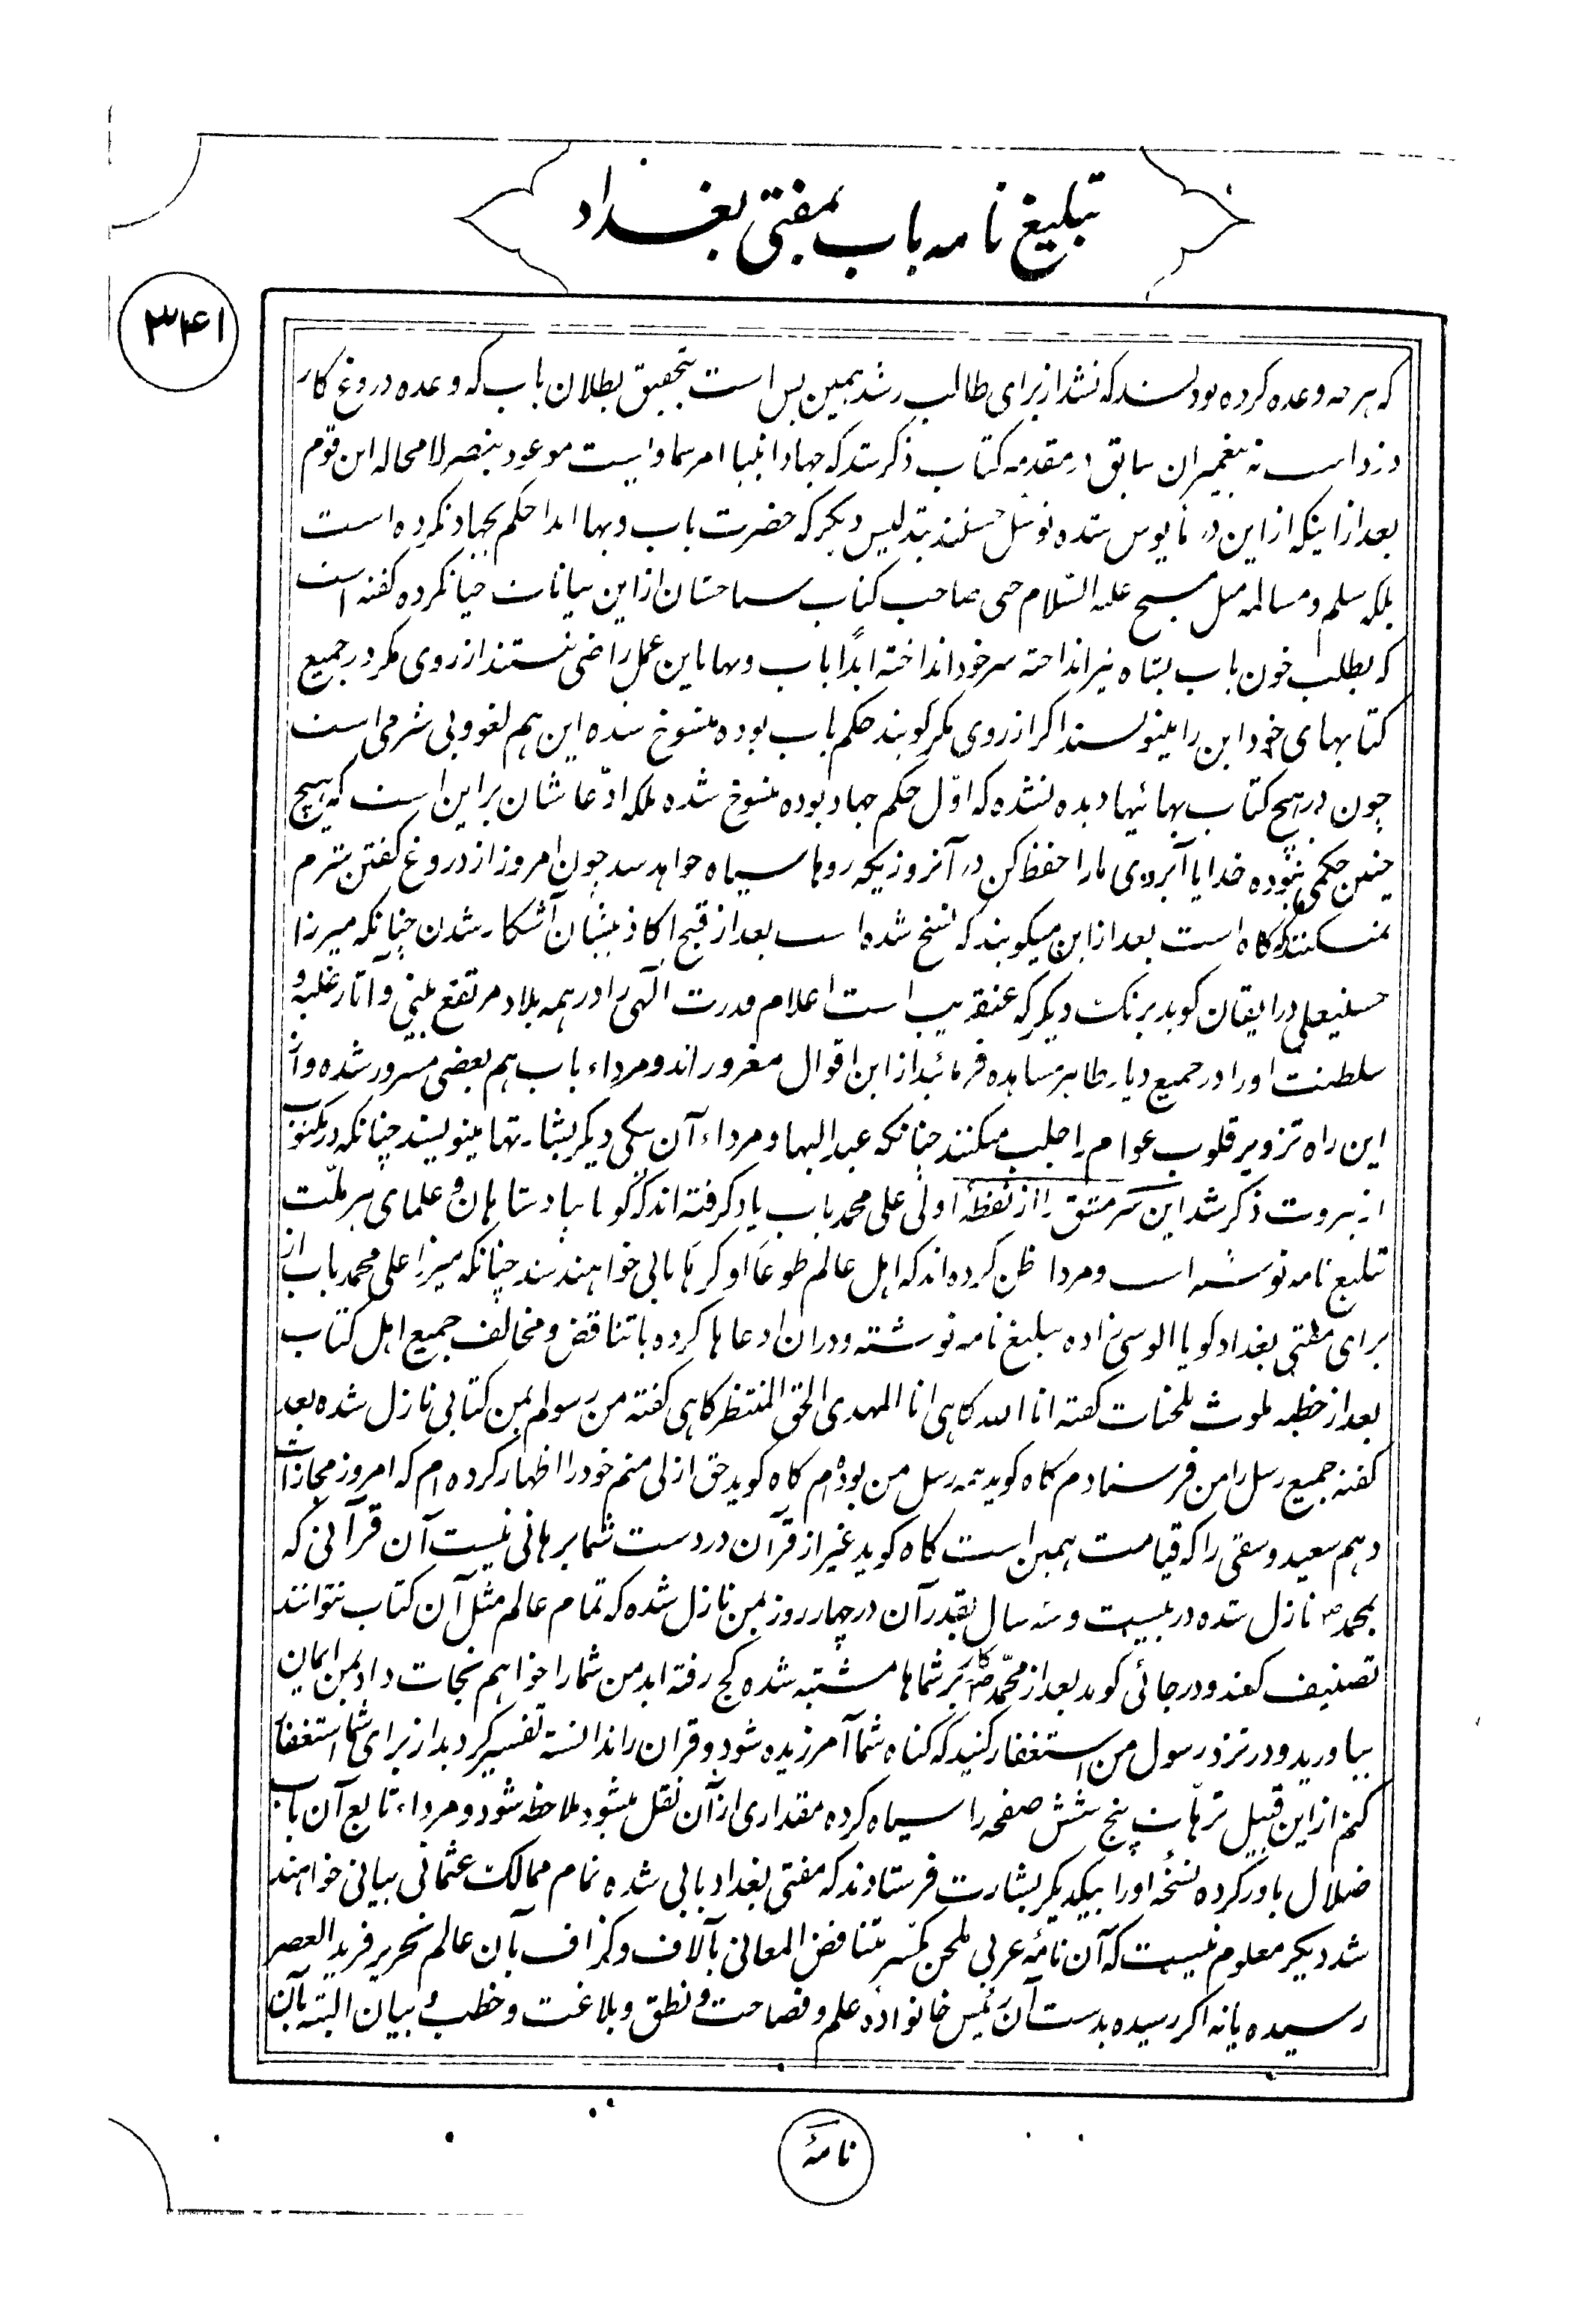 تبلیغ نامه باب بمفتی بغداد
۳۴۱
که هر چه وعده کرده بودند که نشد از برای طالب رشد همین بس است بتحقیق بطلان باب که وعده دروغ کار
دزد است نه پیغمبران سابق در مقدمه کتاب ذکر شد که جهاد انبیا امر سماوایست موعود بنصر لا محاله این قوم
بعد از اینکه از این در مأیوس شده توسل جستند بتدلیس دیگر که حضرت باب و بها ابدا حکم بجهاد نکرده است
بلکه سلم و مسالمه مثل مسیح علیه السّلام حتی صاحب کتاب سیاحتشان از این بیانات حیا نکرده گفته است
که بطلب خون باب بشاه تیر انداخته سر خود انداخته ابداً باب و بها باین عمل راضی نیستند از روی مکر در جمیع
کتابهای خود این را مینویسند اگر از روی مکر گویند حکم باب بوده منسوخ شده این هم لغو و بی شرمی است
چون در هیچ کتاب بهائیها دیده نشده که اوّل حکم جهاد بوده منسوخ شده بلکه ادّعاشان بر این است که هیچ
چنین حکمی نبوده خدایا آبروی ما را حفظ کن در آنروزیکه روها سیاه خواهد شد چون امروز از دروغ گفتن شرم
نمیکنند گاه است بعد از این میگویند که نسخ شده است بعد از قبح اکاذیبشان آشکار شدن چنانکه میرزا
حسنیعلی در ایقان گوید برنگ دیگر که عنقریب است اعلام قدرت الهی را در همه بلاد مرتفع بینی و آثار غلبه و
سلطنت او را در جمیع دیار ظاهر مشاهده فرمائید از این اقوال مغرور اند و مرداء باب هم بعضی مسرور شده و از
این راه تزویر قلوب عوام را جلب میکنند چنانکه عبد البها و مرداء آن یکی دیگر بشارتها مینویسند چنانکه در مکتوب
از بیروت ذکر شد این سرمشق را از نقطهٔ اولی علی محمد باب یاد گرفته اند که گویا بپادشاهان و علمای هر ملّت
تبلیغ نامه نوشته است و مردا ظن کرده اند که اهل عالم طوعاً او کرهاً بابی خواهند شد چنانکه میرزا علی محمد باب از
برای مفتی بغداد گویا الوسی زاده تبلیغ نامه نوشته و در ان ادعاها کرده با تناقض و مخالف جمیع اهل کتاب
بعد از خطبه ملوث بلحنات گفته انا الله گاهی انا المهدی الحق المنتظر گاهی گفته من رسولم بمن کتابی نازل شده بعد
گفته جمیع رسل را من فرستادم گاه گوید همه رسل من بوده‌ام گاه گوید حق ازلی منم خود را اظهار کرده ام که امروز مجازات
دهم سعید و شقی را که قیامت همین است گاه گوید غیر از قرآن در دست شما برهانی نیست آن قرآنی که
بمحمد ص نازل شده در بیست و سه سال بقدر آن در چهار روز بمن نازل شده که تمام عالم مثل آن کتاب نتوانند
تصنیف کنند و در جائی گوید بعد از محمّد ص کار بر شماها مشتبه شده کج رفته اید من شما را خواهم نجات داد بمن ایمان
بیاورید و در نزد رسول من استغفار کنید که گناه شما آمرزیده شود و قران را ندانسته تفسیر کردید از برای شما استغفار
کنم از این قبیل ترّهات پنج شش صفحه را سیاه کرده مقداری از آن نقل میشود ملاحظه شود و مرداء تابع آن باب
ضلال باور کرده نسخهٔ او را بیکدیگر بشارت فرستادند که مفتی بغداد بابی شده تمام ممالک عثمانی بیانی خواهند
شد دیگر معلوم نیست که آن نامهٔ عربی ملحن مکسّر متناقض المعانی بآلاف و گزاف بآن عالم نحریر فرید العصر
رسیده یا نه اگر رسیده بدست آن رئیس خانوادهٔ علم و فصاحت و نطق و بلاغت و خطب و بیان البته بآن
نامهٔ